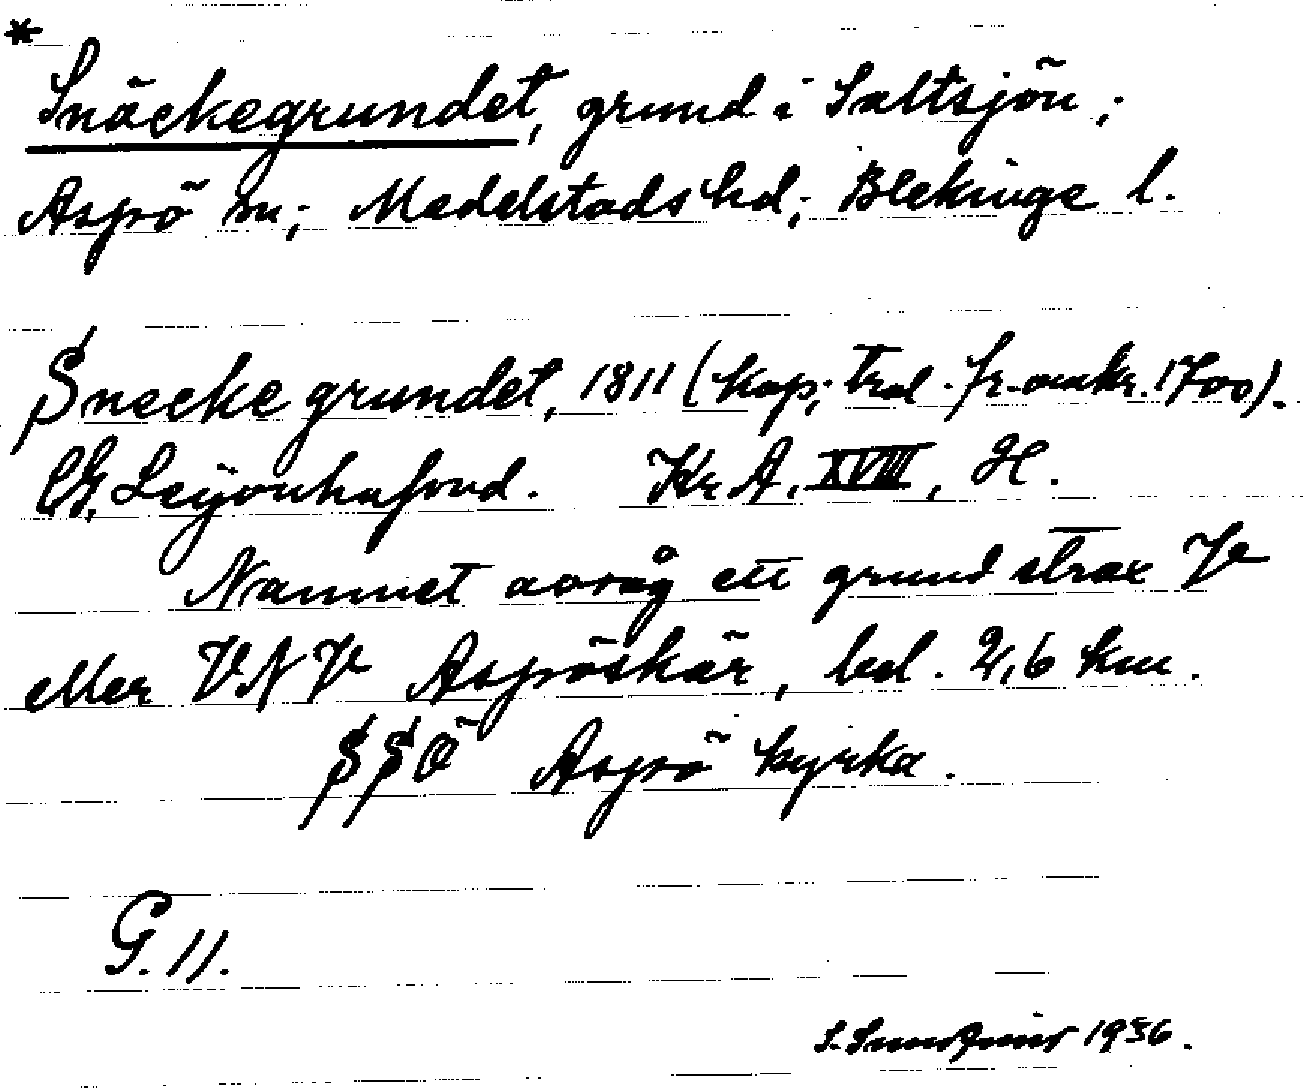 *
Snäckegrundet, grund i Saltsjön;
Aspö sn; Medelstads hd; Blekinge l.
Snecke grundet, 1811 (kop; trol. fr. omkr. 1700).
CG. Leijonhufvud. Kr A, XVIII, H.
Namnet avsåg ett grund strax V
eller VNV Aspöskär, bel. 2,6 km.
SSÖ Aspö kyrka.
G. 11.
S. 1936.